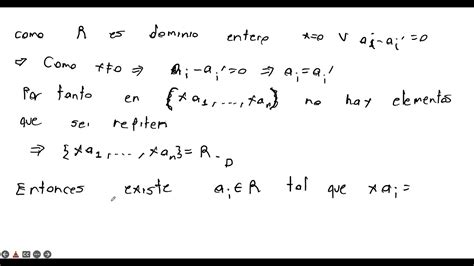 como R es dominio entero x=0 ∨ ai-ai'=0
⇒ Como x≠0 ⇒ ai-ai'=0 ⇒ ai=ai'
Por tanto en {xa1,...,xan} no hay elementos
que sei repitem
⇒ {xa1,...,xan}=R
Entonces existe ai∈R tal que xai=